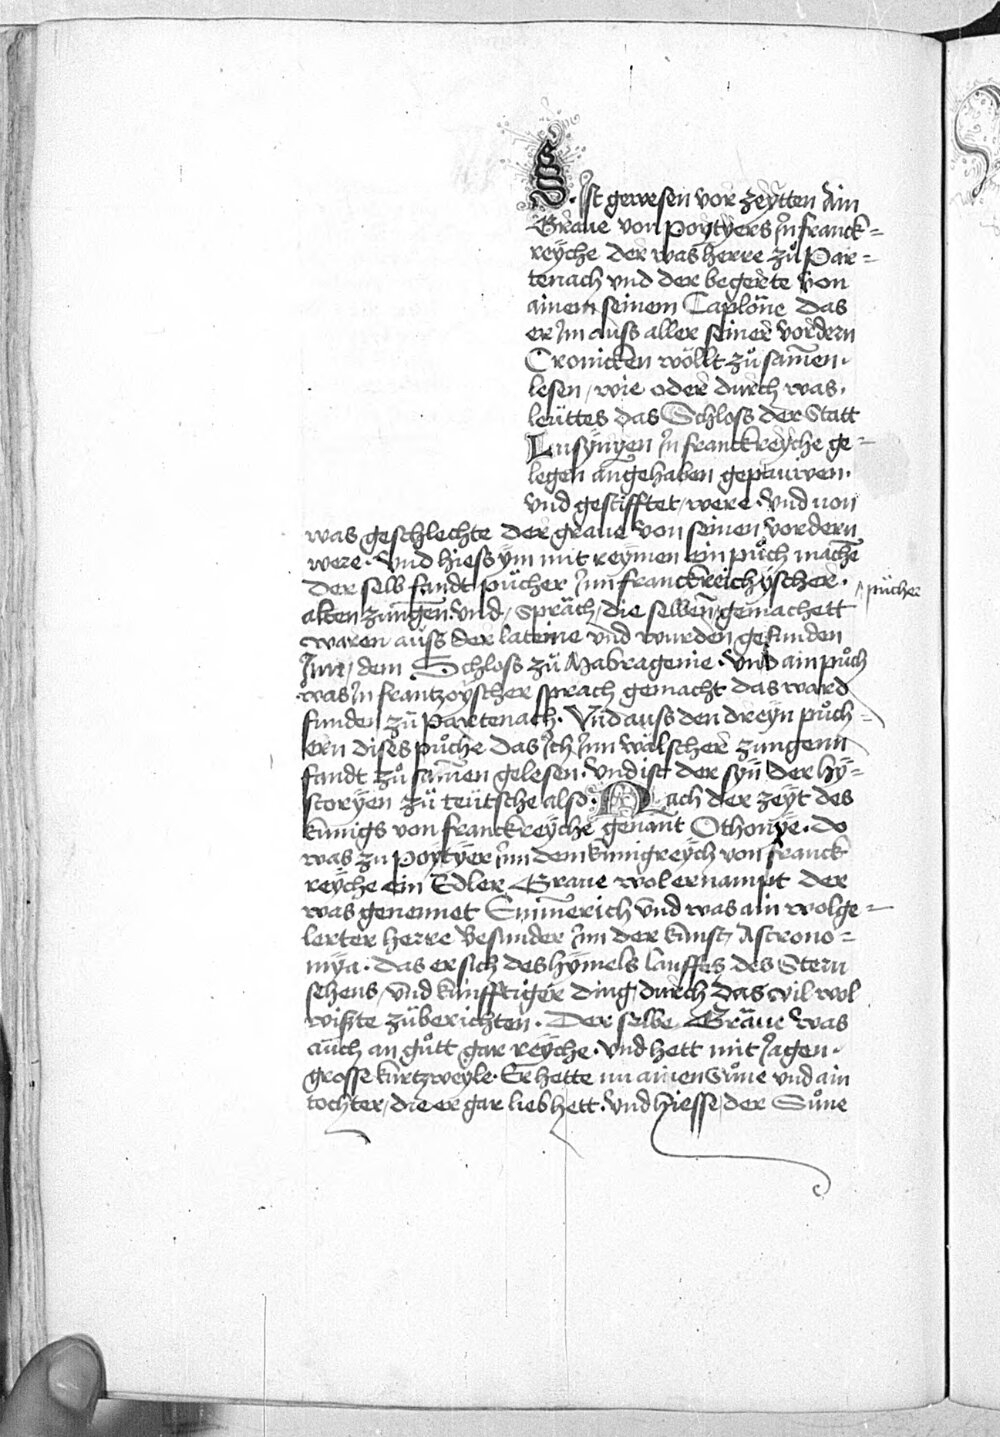 ES. Ist gewesen vor zeÿtten Ain
Graue von poÿtÿers In franck=
reÿche der was herre zů Par=
tenach vnd der begerte von
ainem seinem Caplöne das
er Im auss aller seiner vordern
Cronicken wöllt zů samen
lesen / wie oder durch was
leüttes das Schloss der Statt
Lusÿnÿen In franckreÿche ge=
legen angehaben gepauwen
vnd gestifftet / were · vnd von
was geschlechte der graue von seinen vordern
were · vnd hiess ÿm mit reÿmen ein půch mache
der selb fandt pücher Inn franckreichÿscher · pücher
alten zungen vnd / spräch / die selben gemachett
waren auss der lateine vnd wurden gefunden
Inn / dem Schloss zů Mabragenie · vnd ain půch
was In frantzoÿscher sprach gemacht das ward
funden zů Partenach · Vnd auss den dreÿn půch=
ern dises půche das Ich Inn wälscher zungenn
fandt zů samen gelesen · vnd ist der sÿn der hÿ=
storÿen zů teütsche also · Nach der zeÿt des
künigs von franckreÿche genant Othonÿe · do
was zu poÿtÿer Inn dem künigreÿch von franck
reÿche ein Edler Graue wol ernampt der
was genennet Emmerich vnd was ain wolge=
lerter herre besunder Inn der kunst Astrono=
mÿa · das er sich des hÿmels lauffes des Stern
sehens / vnd künfftiger ding durch das vil wol
wißte zůberichten · Der selbe Graue was
auch an gůtt gar reÿche · vnd hett mit Jagen
grosse kurtzweÿle · Er hette nu ainen Sůne vnd ain
tochter / die er gar lieb hett · vnd hiesse der Sůne